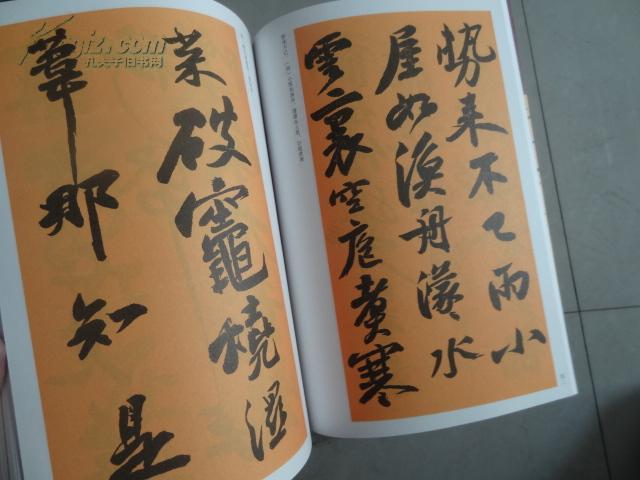 勢来不已雨小
屋如漁舟濛〻水
雲裏空庖煮寒
菜破竈燒濕
葦那知是
孔夫子旧书网